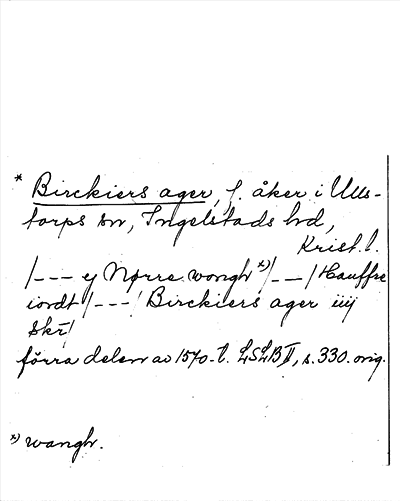 * Birckiers ager, f. åker i Ulls-
torps sn, Ingelstads hd,
Krist. l.
/--- y Nørre wongh x)/---/ Hauffre
iordt /---/ Birckiers ager iiij
Skr/
förra delen av 1570-t. LSLB II, s. 330. orig.
x) wangh.